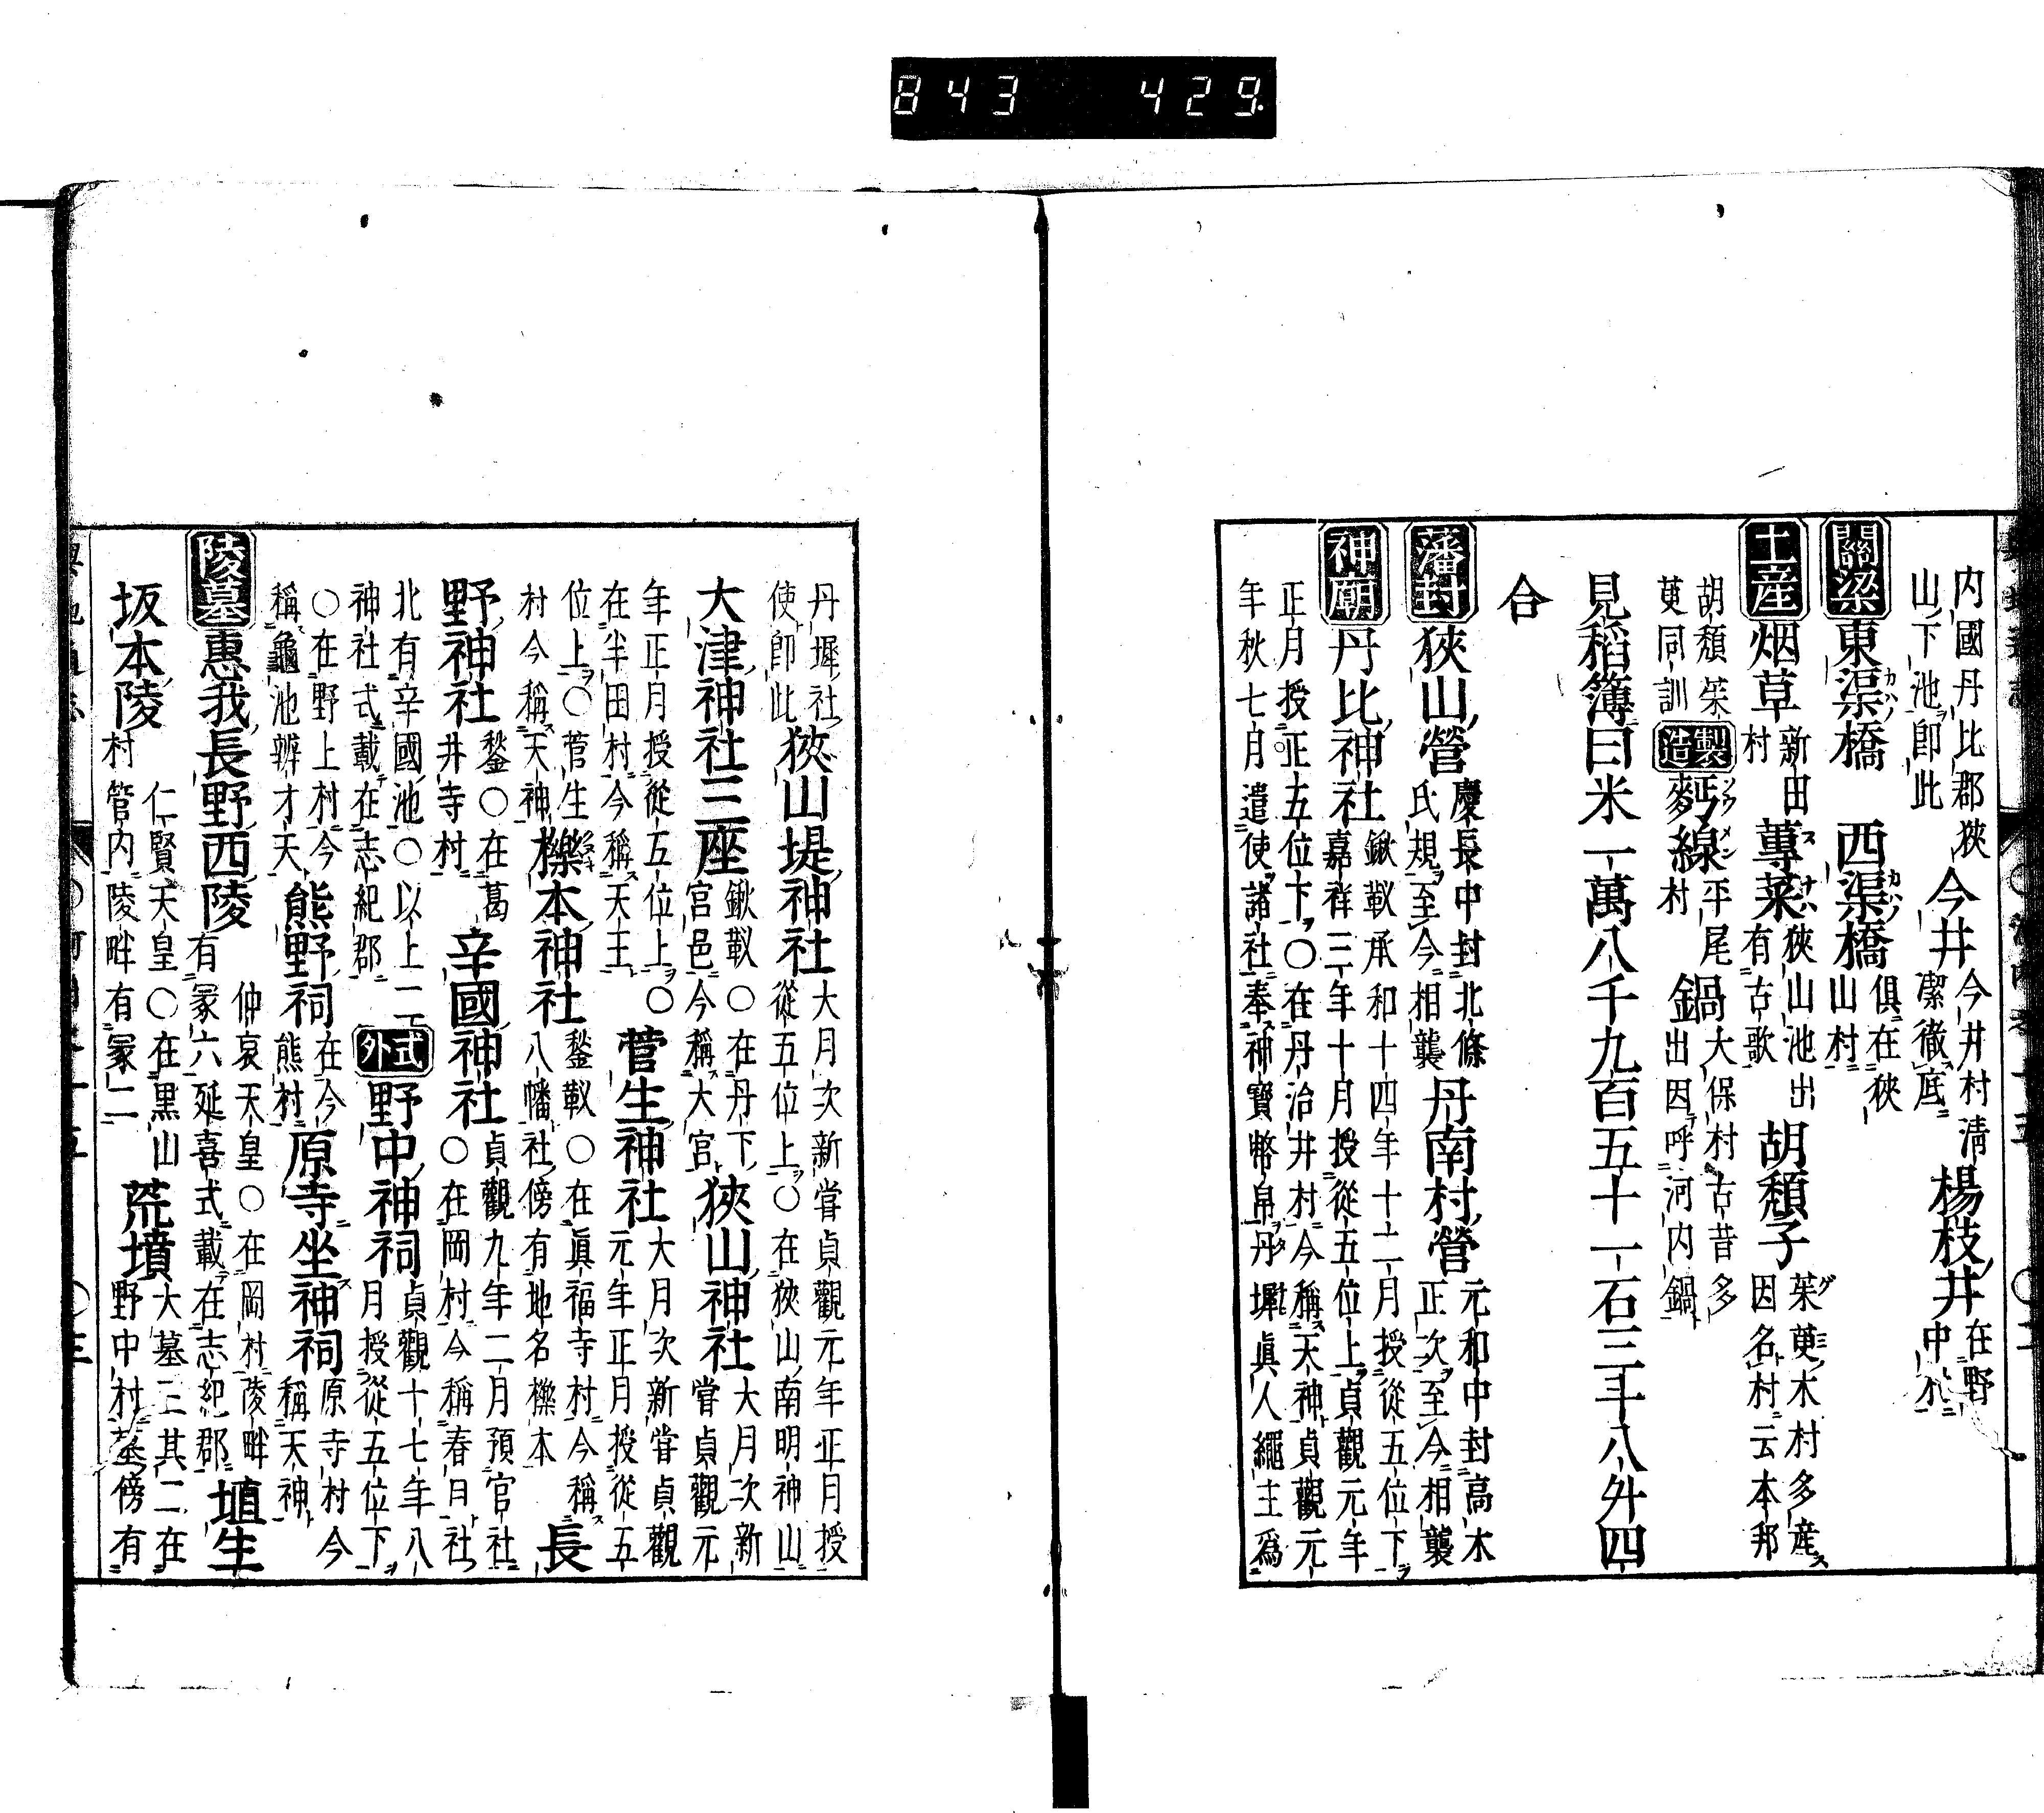 843 429
内國丹比郡狹
山下池即此
今井
今井村清
潔徹底
楊枝井
在野
中村
關梁
東渠橋
西渠橋
俱在狹
山村
土産
烟草
新田
村
蓴菜
狹山池出
有古歌
胡頽子
茱萸木村多産
因名村云本邦
胡頽茱
萸同訓
製造
麪線
平尾
村
鍋
大保村古昔多
出因呼河内鍋
見稻簿曰米一萬八千九百五十一石三斗八升四
合
藩封
狹山營
慶長中封北條
氏規至今相襲
丹南村營
元和中封高木
正次至今相襲
神廟
丹比神社
鍬靫承和十四年十二月授從五位下
嘉祥三年十月授從五位上貞觀元年
正月授正五位下〇在丹治井村今稱天神貞觀元
年秋七月遣使諸社奉神寶幣帛丹墀眞人繩主爲
丹墀社
使即此
狹山堤神社
大月次新甞貞觀元年正月授
從五位上〇在狹山南明神山
大津神社三座
鍬靫〇在丹下
宮邑今稱大宮
狹山神社
大月次新
甞貞觀元
年正月授從五位上〇
在半田村今稱天王
菅生神社
大月次新甞貞觀
元年正月授從五
位上〇菅生
村今稱天神
櫟本神社
鍫靫〇在眞福寺村今稱
八幡社傍有地名櫟本
長
野神社
鍫〇在葛
井寺村
辛國神社
貞觀九年二月預官社
〇在岡村今稱春日社
北有辛國池〇以上二
神社式載在志紀郡
式外
野中神祠
貞觀十七年八
月授從五位下
〇在野上村今
稱龜池辨才天
熊野祠
在今
熊村
原寺坐神祠
原寺村今
稱天神
陵墓
惠我長野西陵
仲哀天皇〇在岡村陵畔
有冢六延喜式載在志紀郡
埴生
坂本陵
仁賢天皇〇在黒山
村管内陵畔有冢二
荒墳
大墓三其二在
野中村墓傍有